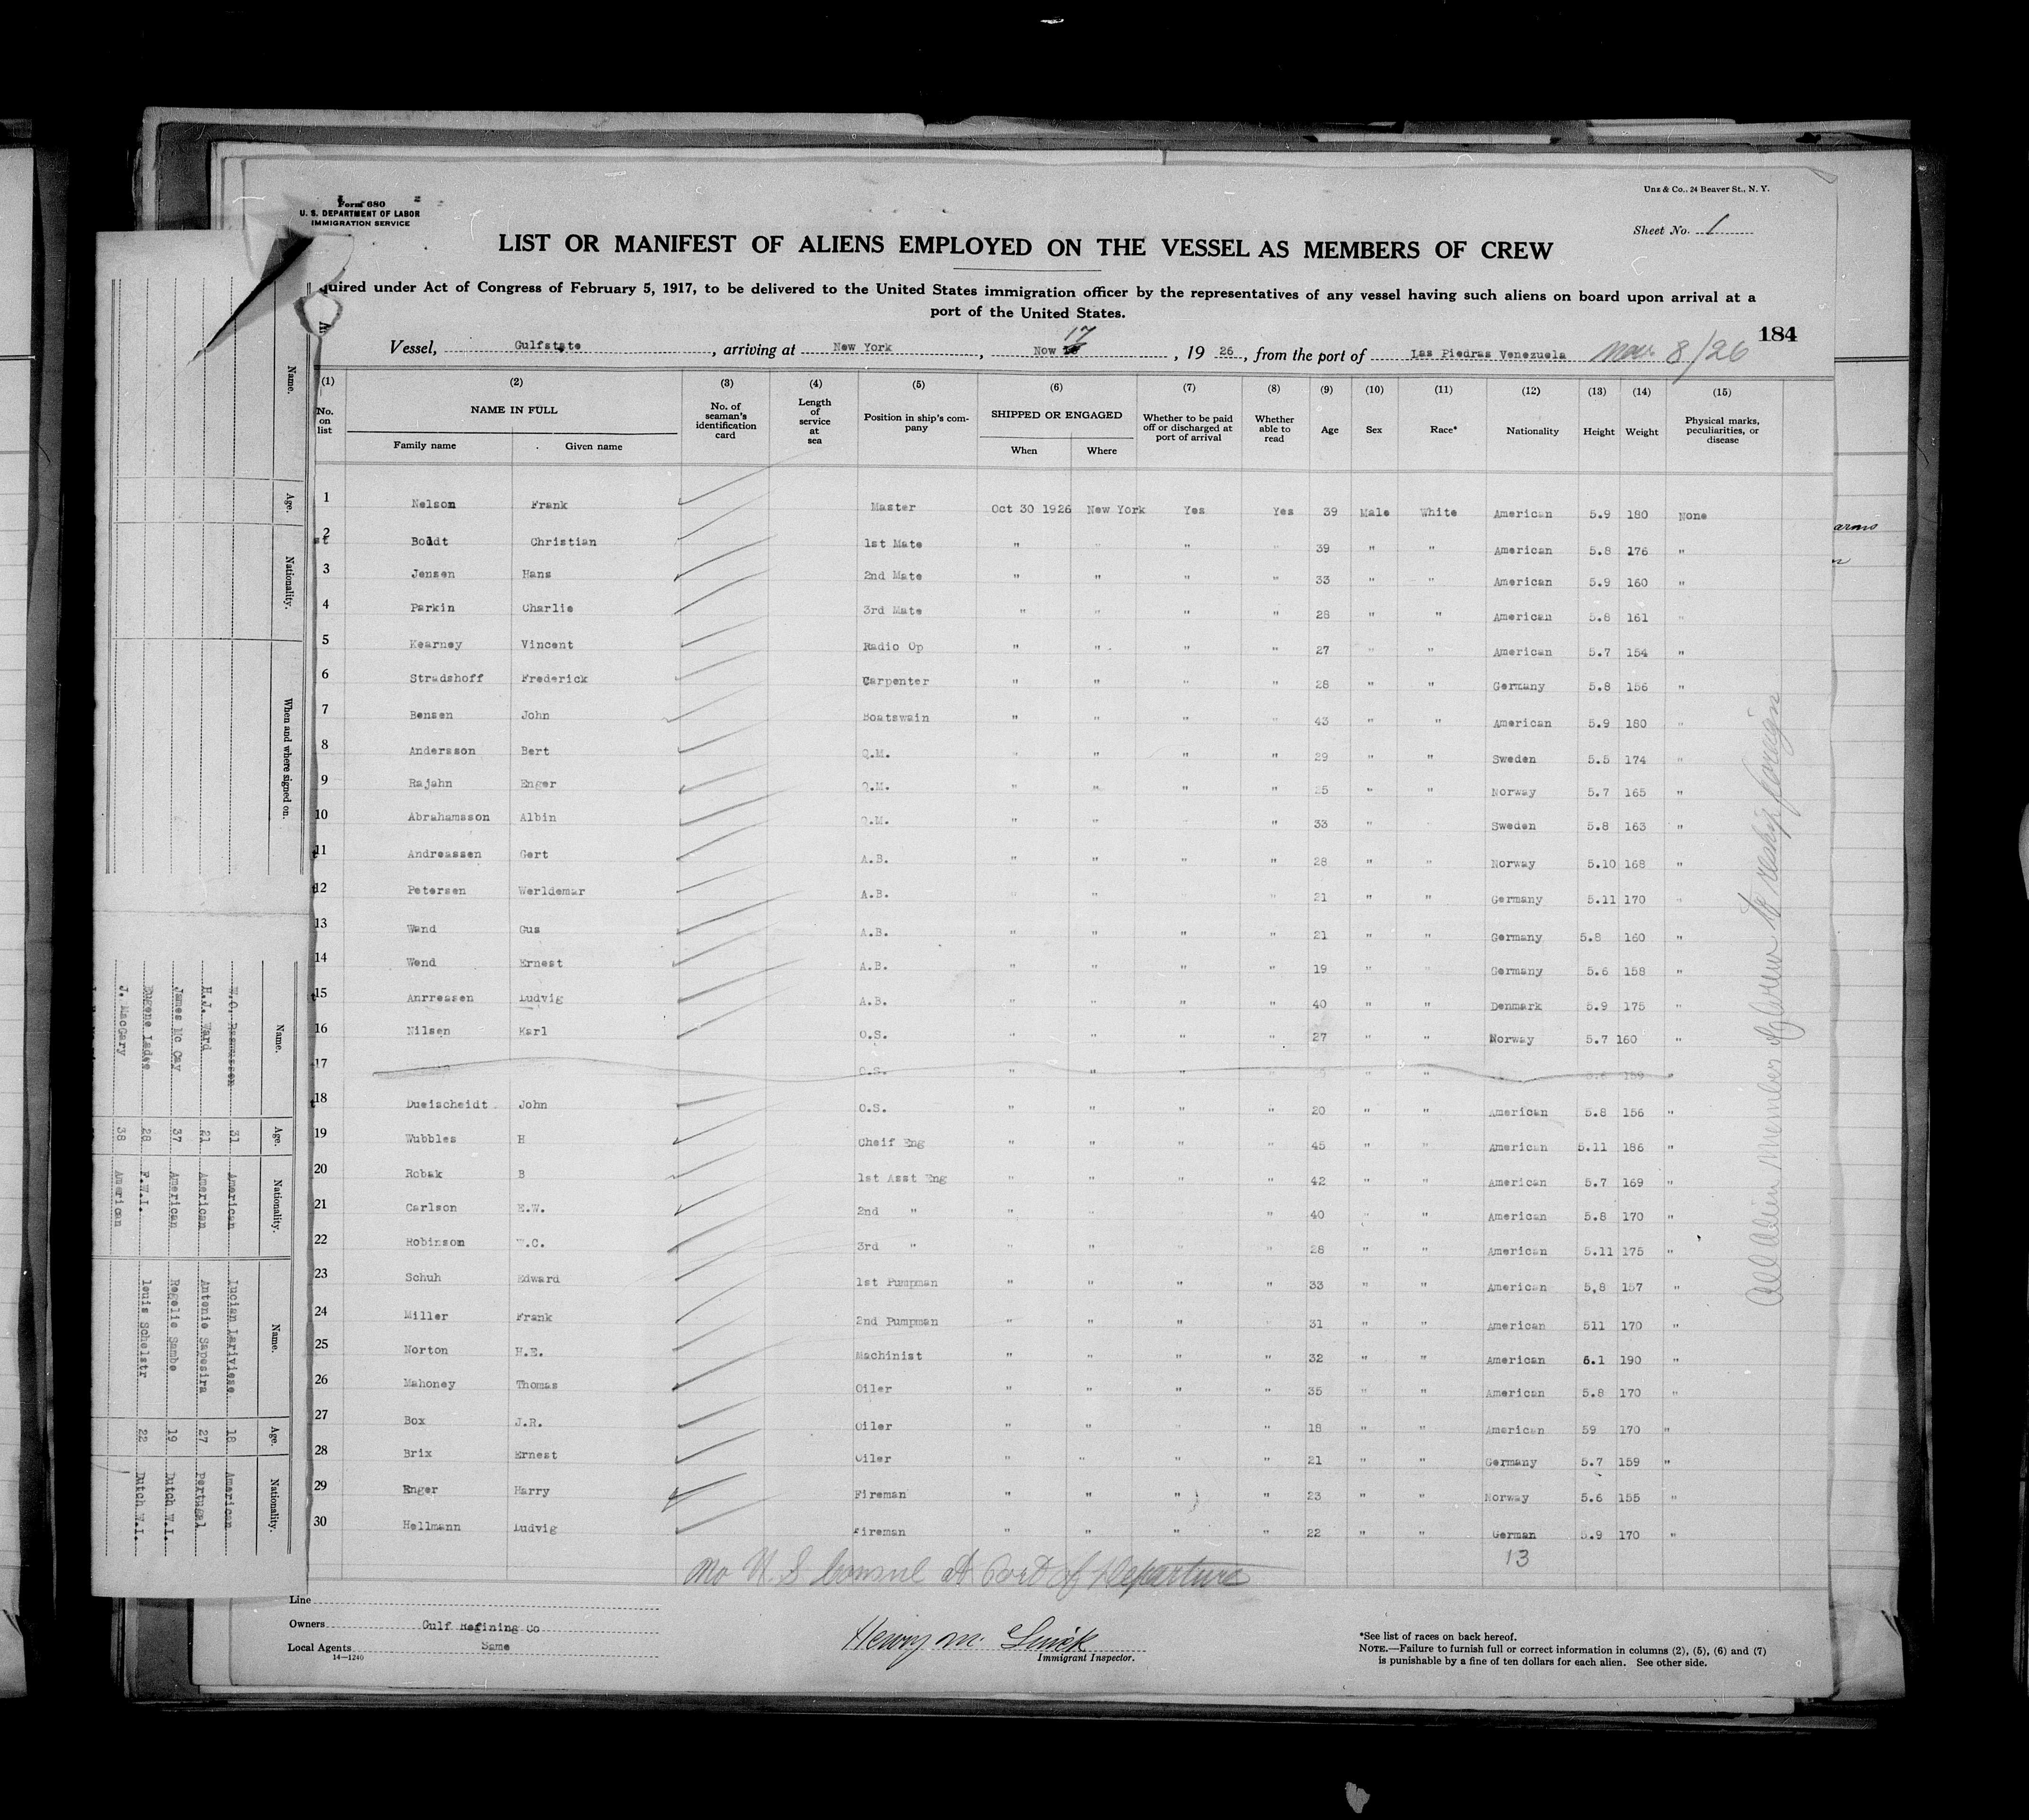 Form 680
U. S. DEPARTMENT OF LABOR
IMMIGRATION SERVICE
Unz & Co., 24 Beaver St., N. Y.
Sheet No. 1
LIST OR MANIFEST OF ALIENS EMPLOYED ON THE VESSEL AS MEMBERS OF CREW
quired under Act of Congress of February 5, 1917, to be delivered to the United States immigration officer by the representatives of any vessel having such aliens on board upon arrival at a
port of the United States.
184
Vessel, Gulfstate, arriving at New York, Nov 17, 1926, from the port of Las Piedras Venezuela Nov. 8/26
(1) (2) (3) (4) (5) (6) (7) (8) (9) (10) (11) (12) (13) (14) (15)
No. on list NAME IN FULL Family name Given name No. of seaman's identification card Length of service at sea Position in ship's company SHIPPED OR ENGAGED When Where Whether to be paid off or discharged at port of arrival Whether able to read Age Sex Race* Nationality Height Weight Physical marks, peculiarities, or disease
1 Nelson Frank Master Oct 30 1926 New York Yes Yes 39 Male White American 5.9 180 None
2 Boldt Christian 1st Mate " " " " 39 " " American 5.8 176 "
3 Jensen Hans 2nd Mate " " " " 33 " " American 5.9 160 "
4 Parkin Charlie 3rd Mate " " " " 28 " " American 5.8 161 "
5 Kearney Vincent Radio Op " " " " 27 " " American 5.7 154 "
6 Stradshoff Frederick Carpenter " " " " 28 " " Germany 5.8 156 "
7 Bensen John Boatswain " " " " 43 " " American 5.9 180 "
8 Andersson Bert Q.M. " " " " 29 " " Sweden 5.5 174 "
9 Rajahn Enger Q.M. " " " " 25 " " Norway 5.7 165 "
10 Abrahamsson Albin Q.M. " " " " 33 " Sweden 5.8 163 "
11 Andreassen Gert A.B. " " " " 28 " " Norway 5.10 168 "
12 Petersen Werldemar A.B. " " " " 21 " " Germany 5.11 170 "
13 Wend Gus A.B. " " " " 21 " " Germany 5.8 160 "
14 Wend Ernest A.B. " " " " 19 " " Germany 5.6 158 "
15 Anrreasen Ludvig A.B. " " " " 40 " " Denmark 5.9 175 "
16 Nilsen Karl O.S. " " " " 27 " " Norway 5.7 160 "
17 O.S. " " " " " 5.6 159 "
18 Dueischeidt John O.S. " " " " 20 " " American 5.8 156 "
19 Wubbles H Cheif Eng " " " " 45 " " American 5.11 186 "
20 Robak B 1st Asst Eng " " " " 42 " " American 5.7 169 "
21 Carlson E.W. 2nd " " " " 40 " " American 5.8 170 "
22 Robinson W.C. 3rd " " " " " 28 " " American 5.11 175 "
23 Schuh Edward 1st Pumpman " " " " 33 " " American 5,8 157 "
24 Miller Frank 2nd Pumpman " " " " 31 " " American 511 170 "
25 Norton H.E. Machinist " " " " 32 " " American 6.1 190 "
26 Mahoney Thomas Oiler " " " " 35 " " American 5.8 170 "
27 Box J.R. Oiler " " " " 18 " " American 59 170 "
28 Brix Ernest Oiler " " " " 21 " " Germany 5.7 159 "
29 Enger Harry Fireman " " " " 23 " " Norway 5.6 155 "
30 Hellmann Ludvig Fireman " " " " 22 " " German 5.9 170 "
13
No U. S Consul at Port of Departure
All Alien Members of Crew to reship foreign
Line
Owners Gulf Refining Co
Local Agents Same
14—1240
Henry M. Smick
Immigrant Inspector.
*See list of races on back hereof.
NOTE.—Failure to furnish full or correct information in columns (2), (5), (6) and (7)
is punishable by a fine of ten dollars for each alien. See other side.
Name. Age. Nationality. When and where signed on.
Name. Age. Nationality. Name. Age. Nationality.
W.O. Rasmussen 31 American Lucian Lariviese 18 American
H.J. Ward 21 American Antonio Sapesira 27 Portugal
James Mc Cay 37 American Rogelio Sambo 19 Dutch W.I.
Eugene Lades 28 F.W.I. Louis Schelstr 22 Dutch W.I.
J. MacGary 38 American